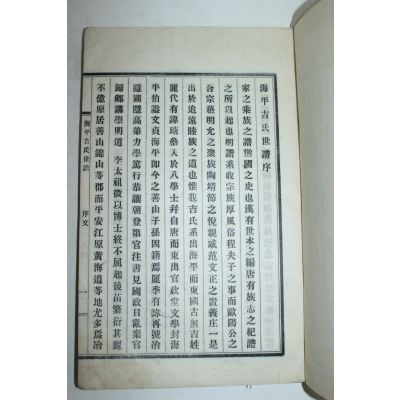 海平吉氏世譜序
家之乘族之譜猶國之史也漢有世本之編唐有族志之紀譜
之所以起也明譜系收宗族厚風俗程夫子之事而歐陽公之
合宗藝明允之聚族陶靖節之悅親戚范文正之置義庄一是
出於追遠睦族之道也惟我吉氏系出海平而東國古無吉姓
麗代有諱瑭叅入於八學士幷自唐而東出官政堂文學封海
平伯諡文貞海平卽今之善山子孫因籍焉麗季有諱再號冶
隱圃隱高弟力學篤行恭讓朝登第官注書見國政日亂棄官
歸鄕講學明道 李太祖徵以博士終不屈起後苗繁衍其麗
不億原居善山錦山等郡而平安江原黃海道等地尤多爲冶
海平吉氏世譜 序文 一